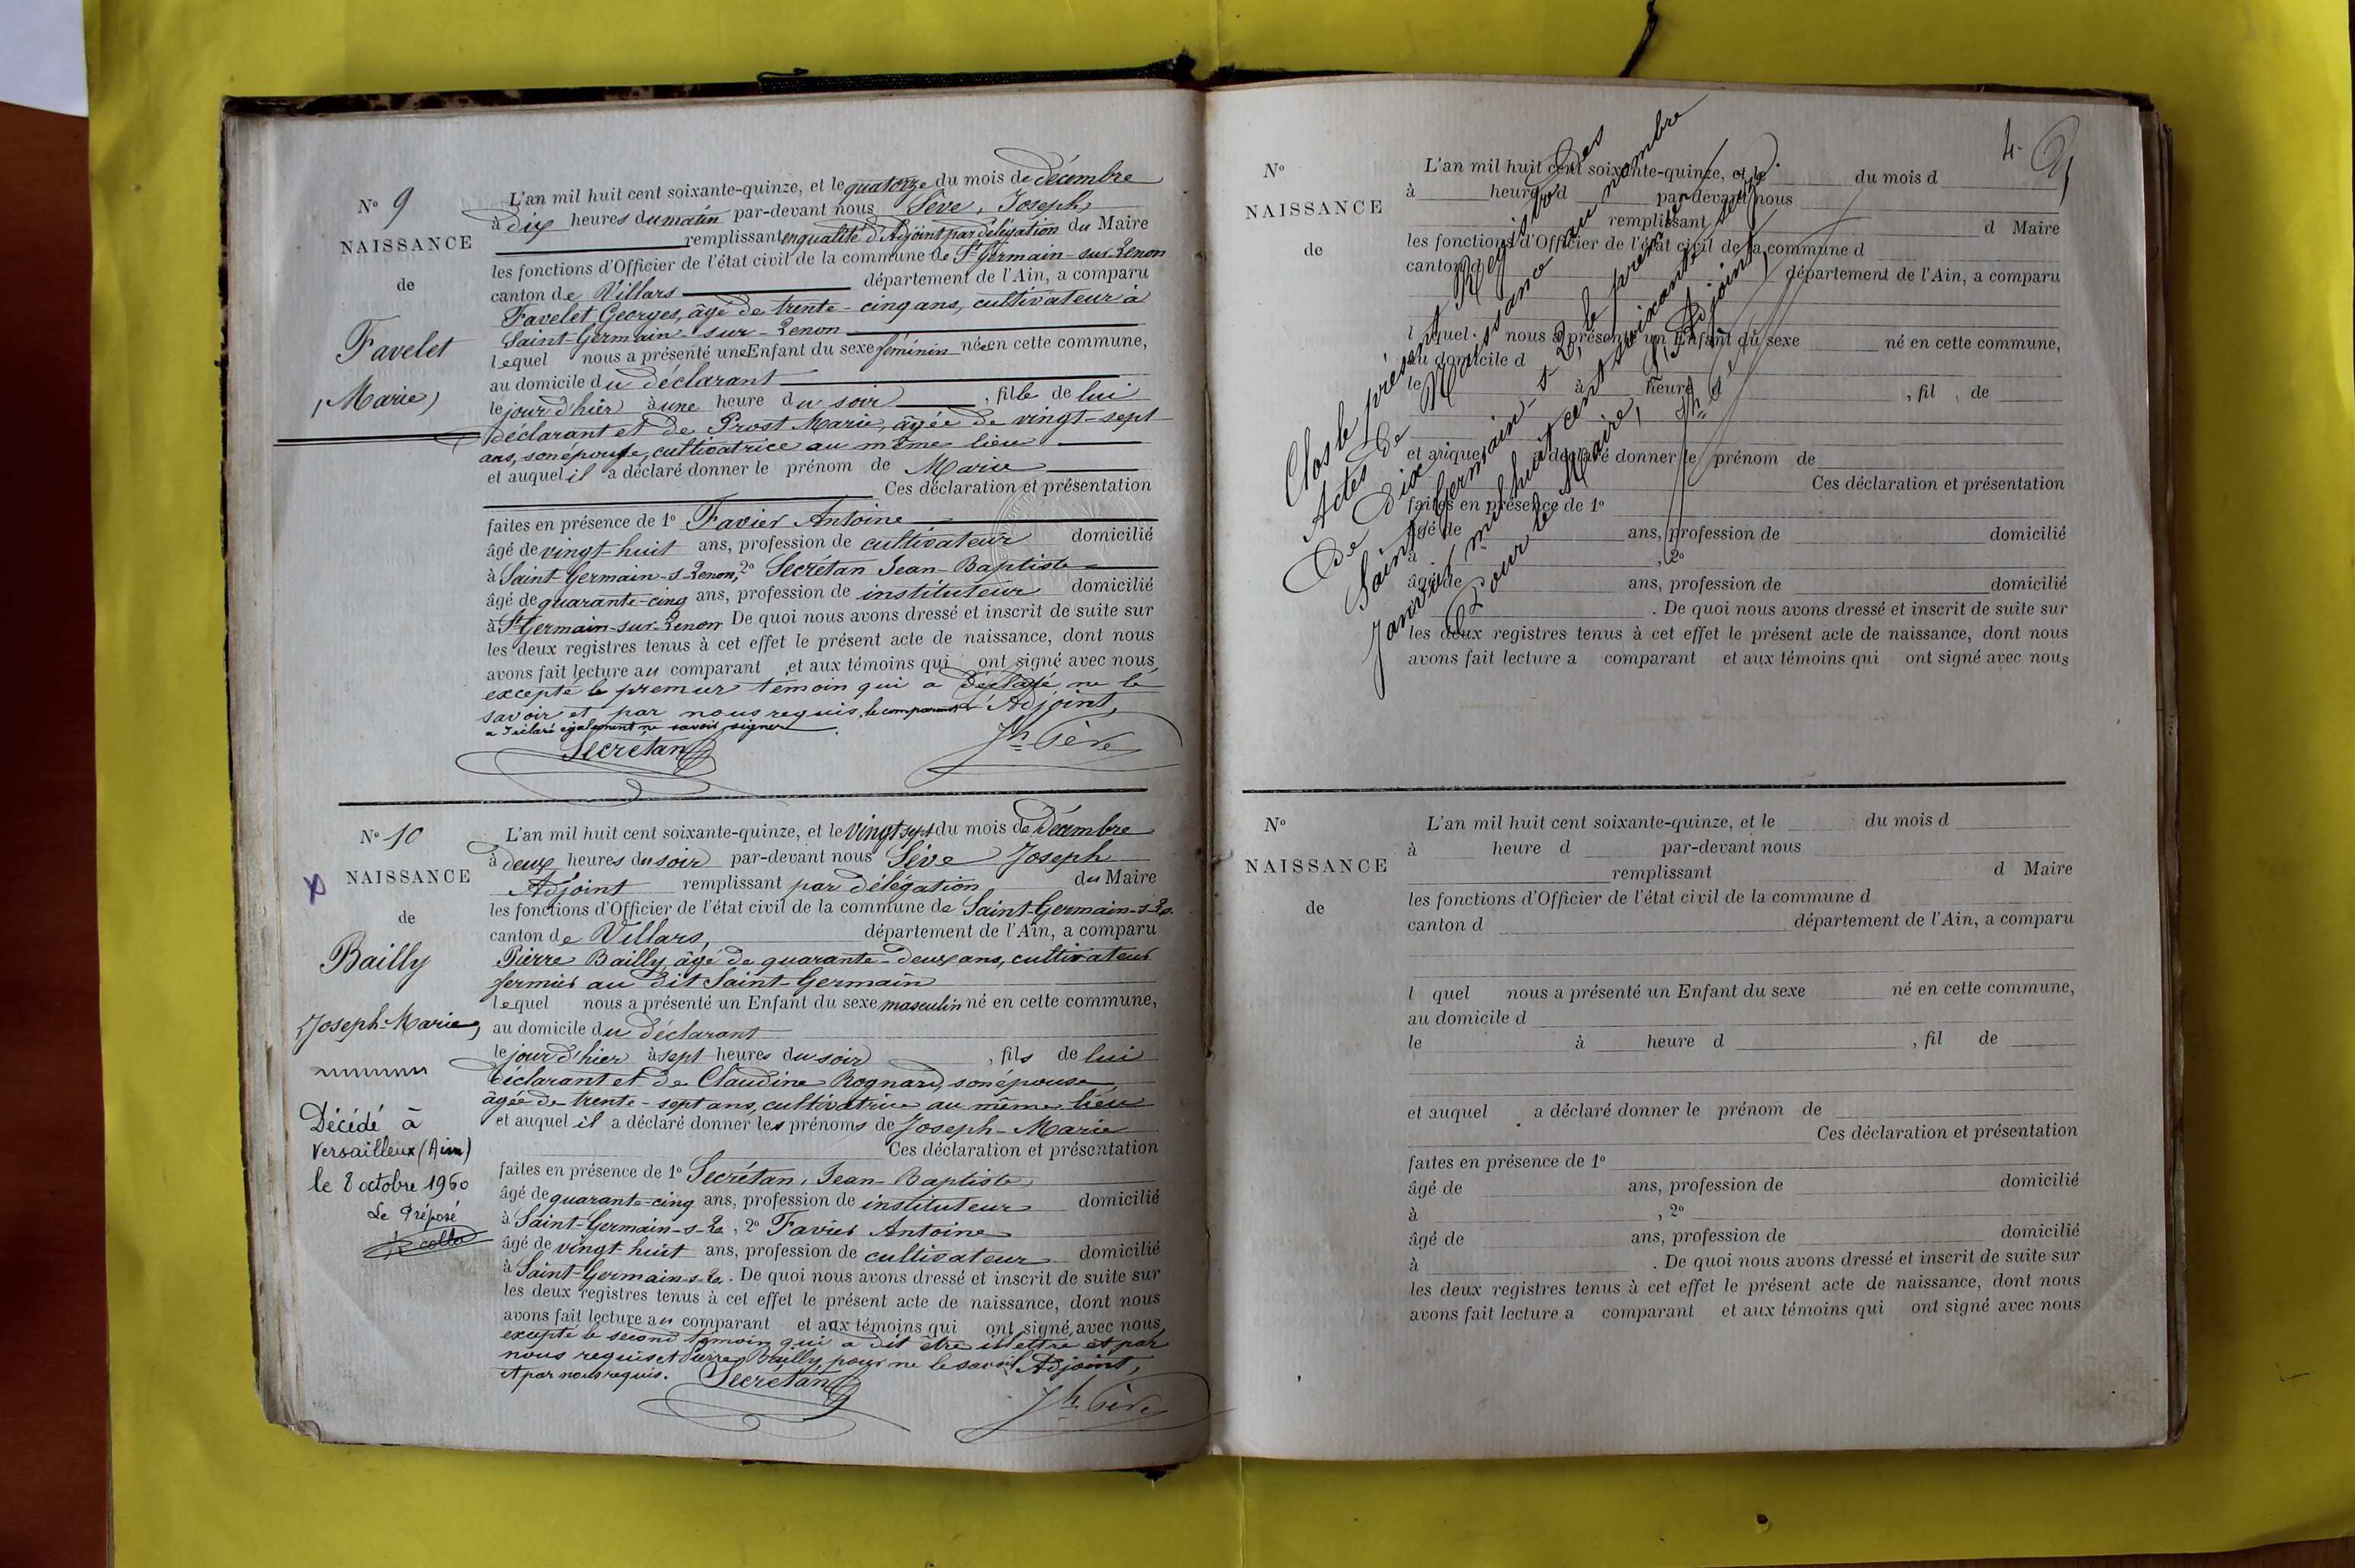 N° 9
NAISSANCE
de
Favelet
(Marie)
L'an mil huit cent soixante-quinze, et le quatorze du mois de décembre
à dix heures du matin par-devant nous Sève, Joseph
remplissant en qualité d'Adjoint par délégation du Maire
les fonctions d'Officier de l'état civil de la commune de St Germain-sur-Renon
canton de Villars département de l'Ain, a comparu
Favelet Georges, âgé de trente-cinq ans, cultivateur à
Saint-Germain-sur-Renon
lequel nous a présenté une Enfant du sexe féminin née en cette commune,
au domicile du déclarant
le jour d'hier à une heure du soir, fille de lui
déclarant et de Prost Marie, âgée de vingt-sept
ans, son épouse, cultivatrice au même lieu
et auquel il a déclaré donner le prénom de Marie
Ces déclaration et présentation
faites en présence de 1° Favier Antoine
âgé de vingt-huit ans, profession de cultivateur domicilié
à Saint-Germain-s-Renon, 2° Secrétan Jean-Baptiste
âgé de quarante-cinq ans, profession de instituteur domicilié
à St Germain-sur-Renon De quoi nous avons dressé et inscrit de suite sur
les deux registres tenus à cet effet le présent acte de naissance, dont nous
avons fait lecture au comparant et aux témoins qui ont signé avec nous,
excepté le premier témoin qui a déclaré ne le
savoir et par nous requis, le comparant L'Adjoint,
a déclaré également ne savoir signer.
Secretan Jh Sève
N° 10
NAISSANCE
de
Bailly
(Joseph-Marie)
Décédé à
Versailleux (Ain)
le 8 octobre 1960
Le Préposé
L'an mil huit cent soixante-quinze, et le vingt sept du mois de Décembre
à deux heures du soir par-devant nous Sève Joseph
Adjoint remplissant par délégation du Maire
les fonctions d'Officier de l'état civil de la commune de Saint-Germain-s-Rn
canton de Villars, département de l'Ain, a comparu
Pierre Bailly, âgé de quarante-deux ans, cultivateur
fermier au dit Saint-Germain
lequel nous a présenté un Enfant du sexe masculin né en cette commune,
au domicile du déclarant
le jour d'hier à sept heures du soir, fils de lui
déclarant et de Claudine Rognard, son épouse,
âgée de trente-sept ans, cultivatrice au même lieu
et auquel il a déclaré donner les prénoms de Joseph-Marie
Ces déclaration et présentation
faites en présence de 1° Secrétan, Jean-Baptiste
âgé de quarante-cinq ans, profession de instituteur domicilié
à Saint-Germain-s-Rn, 2° Favier Antoine
âgé de vingt-huit ans, profession de cultivateur domicilié
à Saint-Germain-s-Rn. De quoi nous avons dressé et inscrit de suite sur
les deux registres tenus à cet effet le présent acte de naissance, dont nous
avons fait lecture au comparant et aux témoins qui ont signé avec nous,
excepté le second témoin qui a dit être illettré et par
nous requis et Pierre Bailly, pour ne le savoir L'Adjoint,
et par nous requis. Secretan Jh Sève
4
N°
NAISSANCE
de
L'an mil huit cent soixante-quinze, et le du mois d
à heure d par-devant nous
remplissant d Maire
les fonctions d'Officier de l'état civil de la commune d
canton d département de l'Ain, a comparu
l quel nous a présenté un Enfant du sexe né en cette commune,
au domicile d
le à heure d , fil de
et auquel a déclaré donner le prénom de
Ces déclaration et présentation
faites en présence de 1°
âgé de ans, profession de domicilié
à , 2°
âgé de ans, profession de domicilié
. De quoi nous avons dressé et inscrit de suite sur
les deux registres tenus à cet effet le présent acte de naissance, dont nous
avons fait lecture a comparant et aux témoins qui ont signé avec nous
Clos le présent Registre des
Actes de Naissance au nombre
de Dix
Saint Germain-s-R, le premier
Janvier mil huit cent soixante seize.
Pour le Maire, l'Adjoint,
Jh Sève
N°
NAISSANCE
de
L'an mil huit cent soixante-quinze, et le du mois d
à heure d par-devant nous
remplissant d Maire
les fonctions d'Officier de l'état civil de la commune d
canton d département de l'Ain, a comparu
l quel nous a présenté un Enfant du sexe né en cette commune,
au domicile d
le à heure d , fil de
et auquel a déclaré donner le prénom de
Ces déclaration et présentation
faites en présence de 1°
âgé de ans, profession de domicilié
à , 2°
âgé de ans, profession de domicilié
à . De quoi nous avons dressé et inscrit de suite sur
les deux registres tenus à cet effet le présent acte de naissance, dont nous
avons fait lecture a comparant et aux témoins qui ont signé avec nous